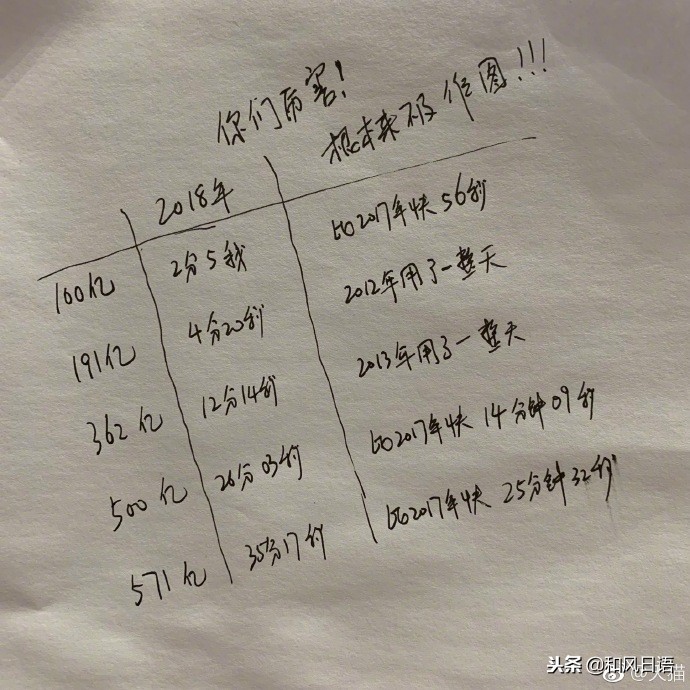 你们厉害!
根本来不及作图!!!
2018年
100亿 2分5秒 比2017年快56秒
191亿 4分20秒 2012年用了一整天
362亿 12分14秒 2013年用了一整天
500亿 26分03秒 比2017年快14分钟09秒
571亿 35分17秒 比2017年快25分钟32秒
头条 @和风日语
@天猫